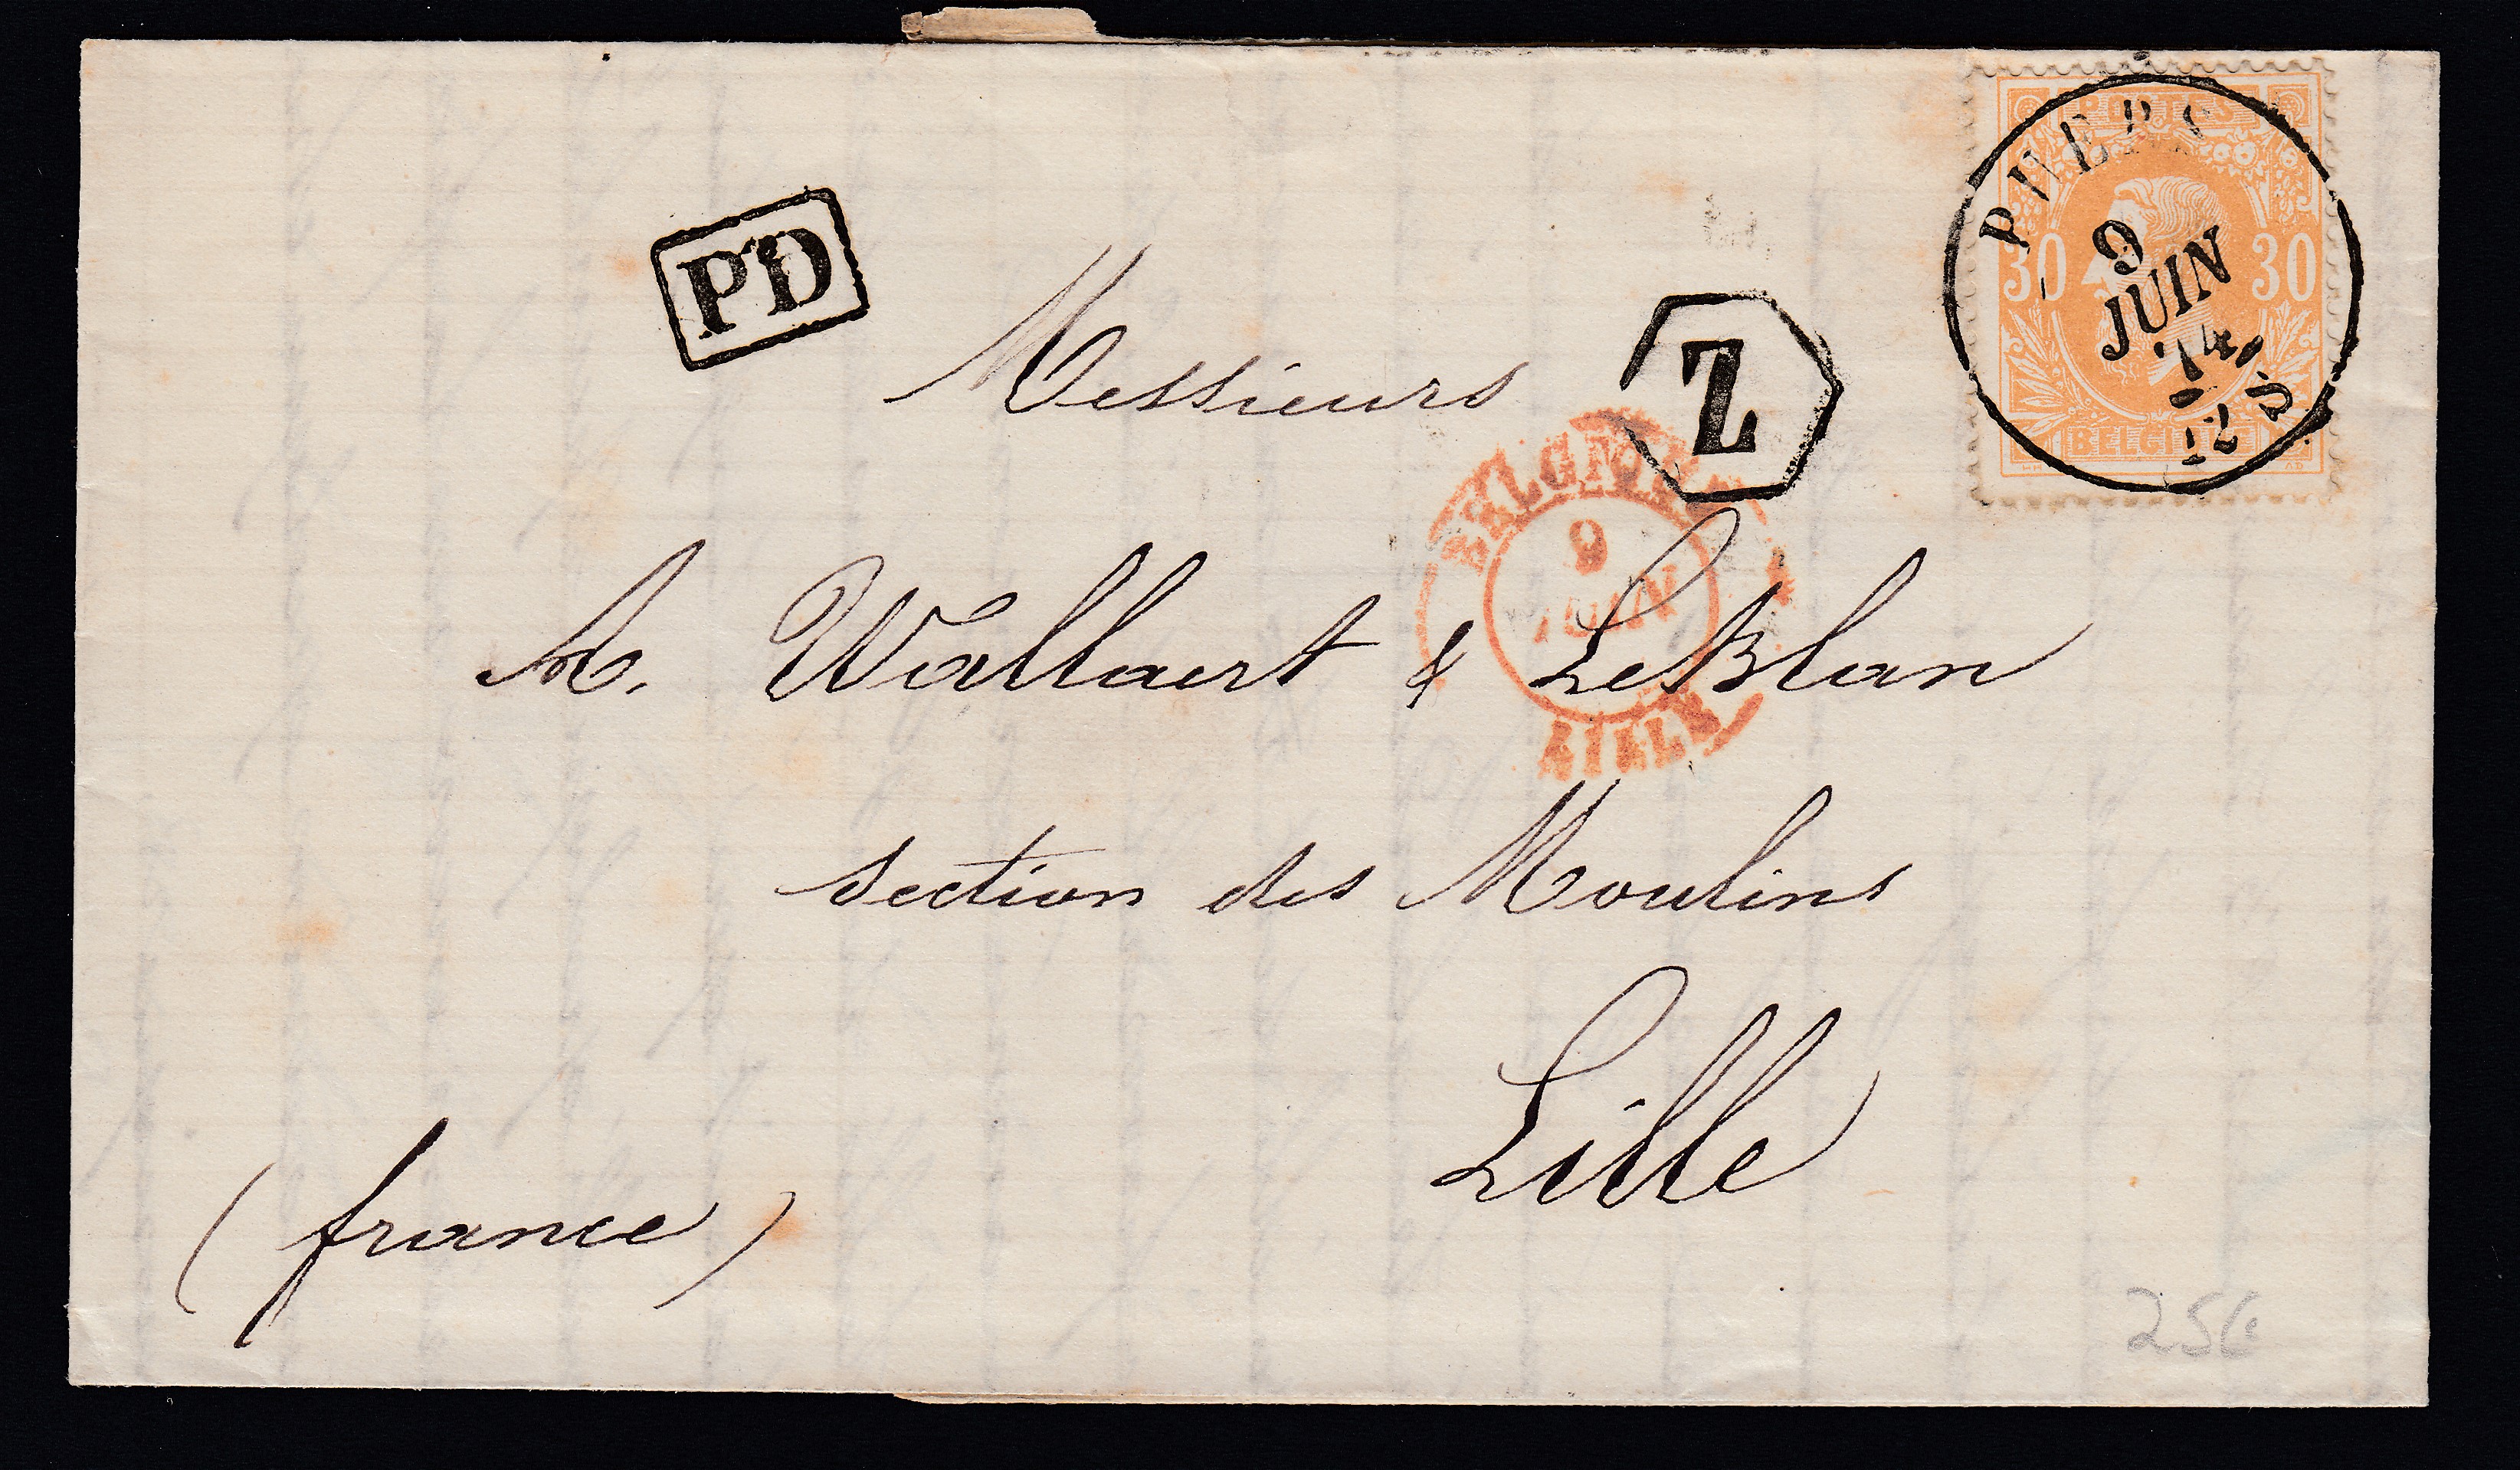 POSTES
PUERS
30 30
9
JUIN
12-S
BELGIQUE
PD
Messieurs
Z
BELGIQUE
9
JUIN
LILLE
A. Wallaert & LeBlan
section des Moulins
Lille
(france)